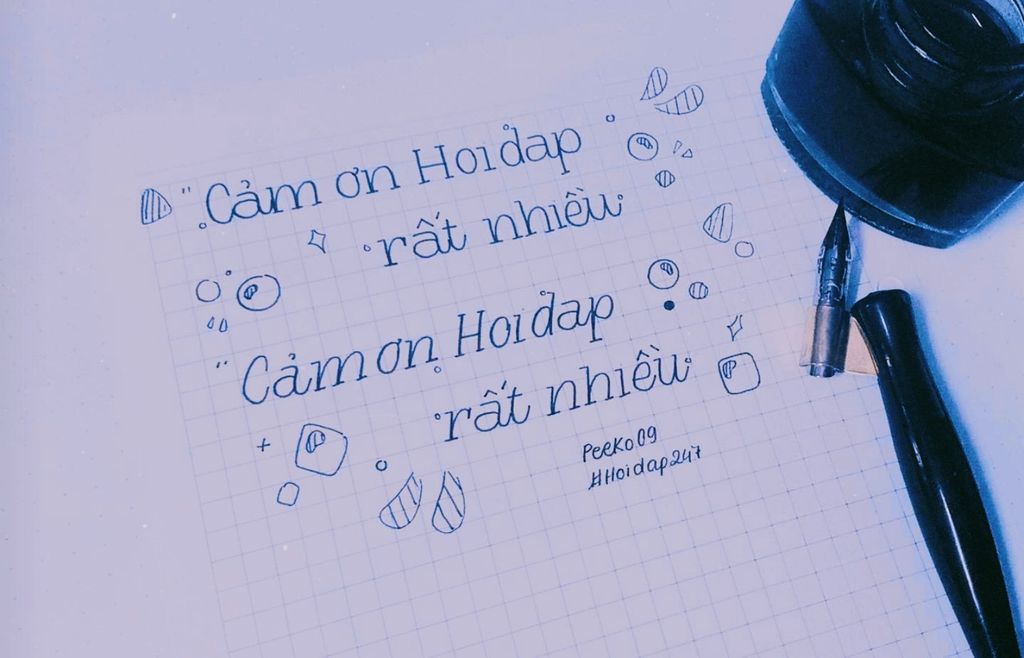 " Cảm ơn Hoidap
rất nhiều
" Cảm ơn Hoidap
rất nhiều
Peeko09
#Hoidap247